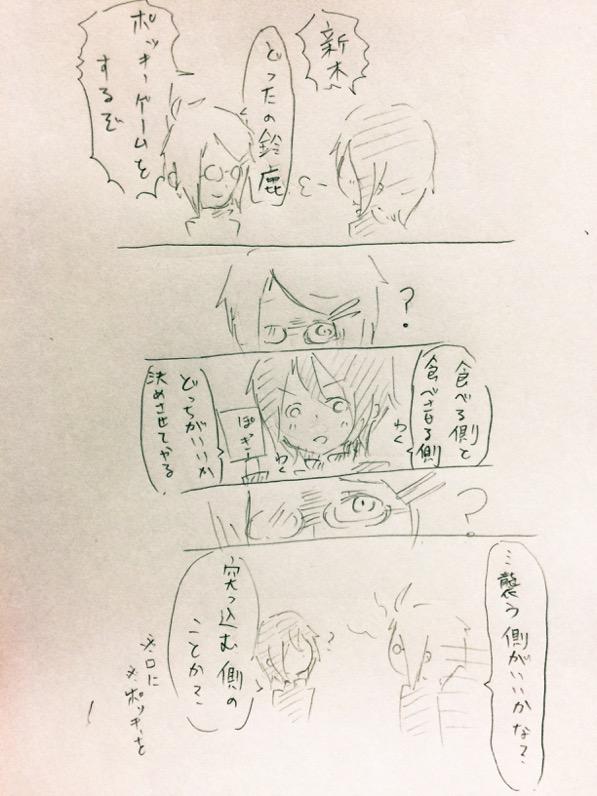 新木
どったの鈴鹿
ポッキーゲームを
するぞ
?
食べる側と
食べさせる側
わく
わく
ぽッキー
どっちがいいか
決めさせてやる
?
…襲う側がいいかな?
?
突っ込む側の
ことか?
※口に
※ポッキーを